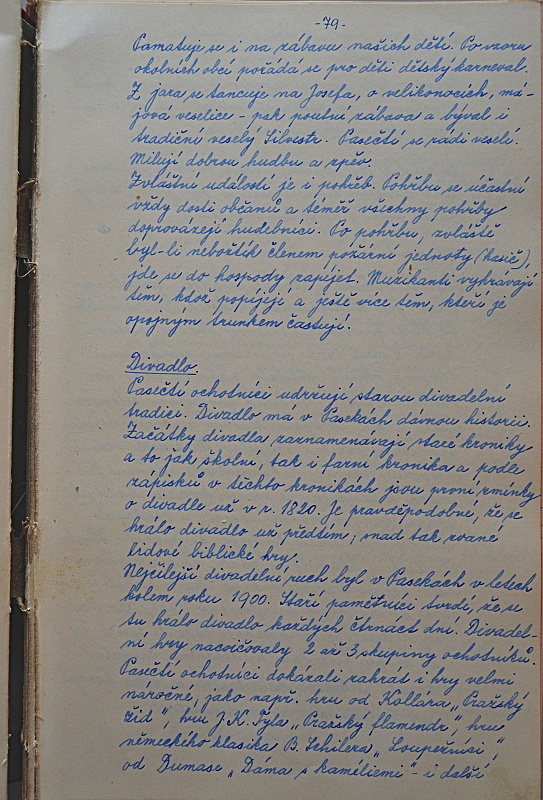 -79-
Pamatuje se i na zábavu našich dětí. Po vzoru
okolních obcí pořádá se pro děti dětský karneval.
Z jara se tancuje na Josefa, o velikonocích, má-
jová veselice - pak poutní zábava a býval i
tradiční veselý Silvestr. Pasečtí se rádi veselí.
Milují dobrou hudbu a zpěv.
Zvláštní událostí je i pohřeb. Pohřbu se účastní
vždy dosti občanů a téměř všechny pohřby
doprovázejí hudebníci. Po pohřbu, zvláště
byl-li nebožtík členem požární jednoty (hasič),
jde se do hospody zapíjet. Muzikanti vyhrávají
těm, kdož popíjejí a ještě více těm, kteří je
opojným trunkem častují.
Divadlo.
Pasečtí ochotníci udržují starou divadelní
tradici. Divadlo má v Pasekách dávnou historii.
Začátky divadla zaznamenávají staré kroniky
a to jak školní, tak i farní kronika a podle
zápisků v těchto kronikách jsou první zmínky
o divadle už v r. 1820. Je pravděpodobné, že se
hrálo divadlo už předtím, snad tak zvané
lidové biblické hry.
Nejčilejší divadelní ruch byl v Pasekách v letech
kolem roku 1900. Staří pamětníci tvrdí, že se
tu hrálo divadlo každých čtrnáct dní. Divadel-
ní hry nacvičovaly 2 až 3 skupiny ochotníků.
Pasečtí ochotníci dokázali zahrát i hry velmi
náročné, jako např. hru od Kollára „Pražský
žid", hru J. K. Tyla „Pražský flamendr", hru
německého klasika B. Schilera „Loupežníci",
od Dumase „Dáma s kaméliemi" - i další